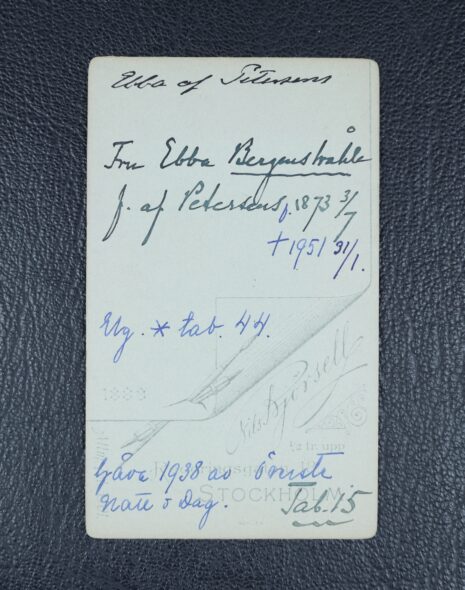 Ebba af Petersens
Fru Ebba Bergenstråhle
f. af Petersens, f. 1873 3/7
† 1951 31/1.
Elg. * tab. 44.
1888
Nils Björsell
½ tr. upp
STOCKHOLM
Gåva 1938 av Överste
Natt o Dag.
Tab. 15